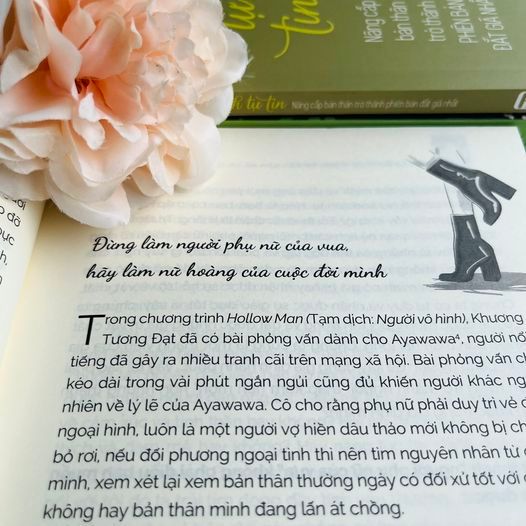 tin
Nâng cấp
bản thân
trở thành
PHIÊN BẢN
ĐẮT GIÁ NHẤT
tự tin Nâng cấp bản thân trở thành phiên bản đắt giá nhất
Đừng làm người phụ nữ của vua,
hãy làm nữ hoàng của cuộc đời mình
Trong chương trình Hollow Man (Tạm dịch: Người vô hình), Khương
Tương Đạt đã có bài phỏng vấn dành cho Ayawawa⁴, người nổi
tiếng đã gây ra nhiều tranh cãi trên mạng xã hội. Bài phỏng vấn ch
kéo dài trong vài phút ngắn ngủi cũng đủ khiến người khác ng
nhiên về lý lẽ của Ayawawa. Cô cho rằng phụ nữ phải duy trì vẻ
ngoại hình, luôn là một người vợ hiền dâu thảo mới không bị ch
bỏ rơi, nếu đối phương ngoại tình thì nên tìm nguyên nhân từ
mình, xem xét lại xem bản thân thường ngày có đối xử tốt với
không hay bản thân mình đang lấn át chồng.